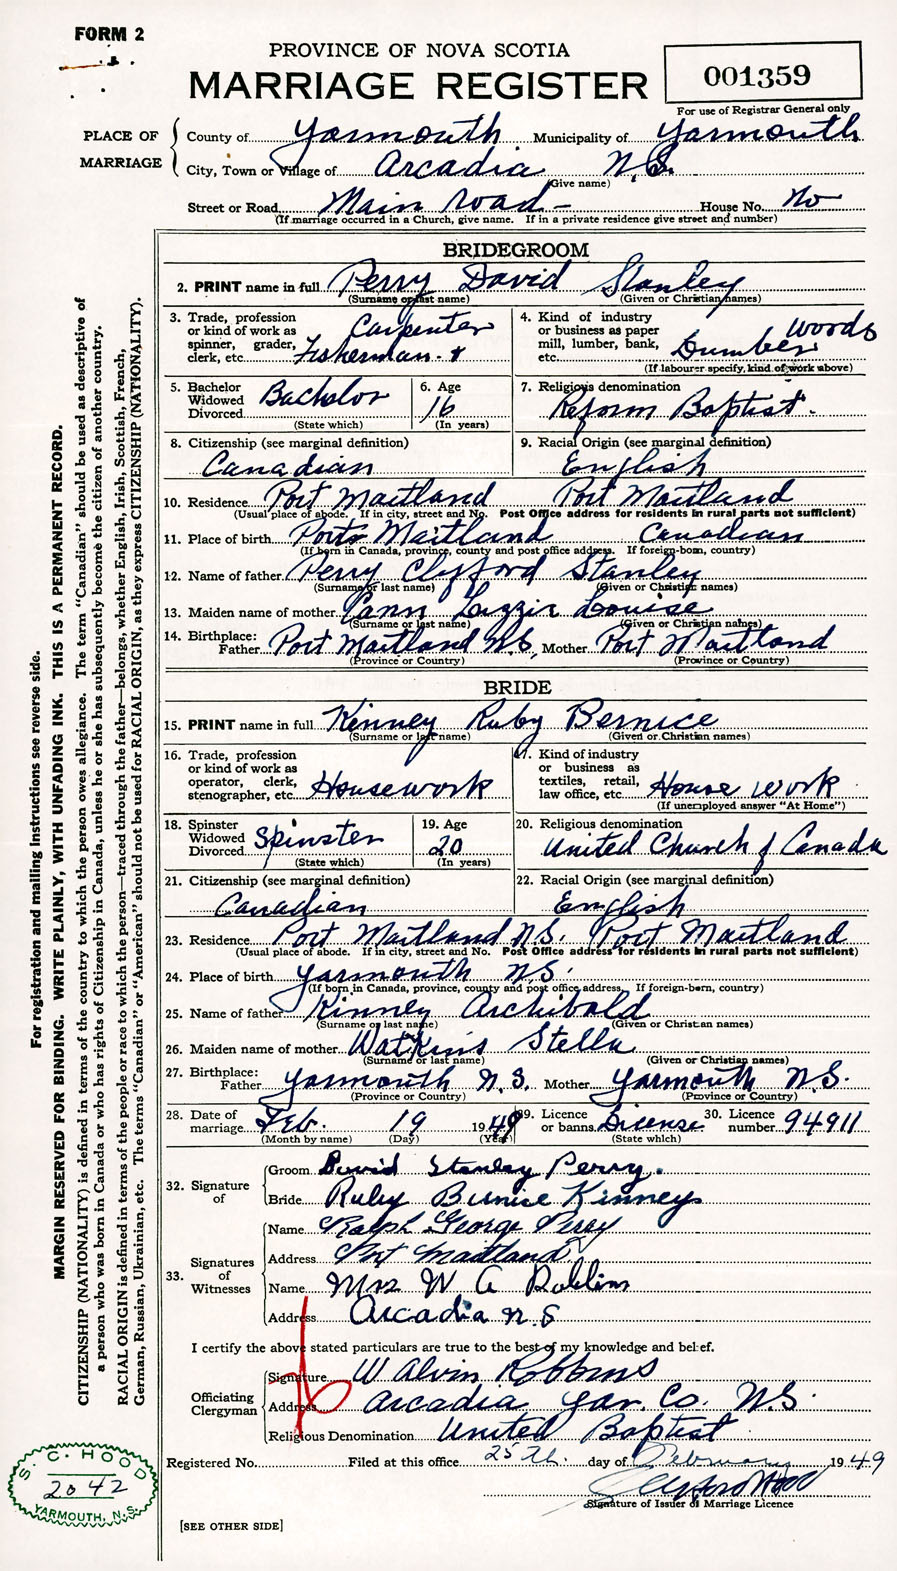 FORM 2
PROVINCE OF NOVA SCOTIA
MARRIAGE REGISTER
001359
For use of Registrar General only
PLACE OF MARRIAGE
County of Yarmouth Municipality of Yarmouth
City, Town or Village of Arcadia N.S.
(Give name)
Street or Road Main Road - House No. No
(If marriage occurred in a Church, give name. If in a private residence give street and number)
BRIDEGROOM
2. PRINT name in full Perry David Stanley
(Surname or last name) (Given or Christian names)
3. Trade, profession or kind of work as spinner, grader, clerk, etc. Carpenter Fisherman - +
4. Kind of industry or business as paper mill, lumber, bank, etc. Woods Lumber
(If labourer specify, kind of work above)
5. Bachelor Widowed Divorced Bachelor
(State which)
6. Age 16
(In years)
7. Religious denomination
Reform Baptist.
8. Citizenship (see marginal definition)
Canadian
9. Racial Origin (see marginal definition)
English
10. Residence Port Maitland Port Maitland
(Usual place of abode. If in city, street and No. Post Office address for residents in rural parts not sufficient)
11. Place of birth Port Maitland Canadian
(If born in Canada, province, county and post office address. If foreign-born, country)
12. Name of father Perry Clifford Stanley
(Surname or last name) (Given or Christian names)
13. Maiden name of mother Cann Lizzie Louise
(Surname or last name) (Given or Christian names)
14. Birthplace: Father Port Maitland N.S. Mother Port Maitland
(Province or Country) (Province or Country)
BRIDE
15. PRINT name in full Kinney Ruby Bernice
(Surname or last name) (Given or Christian names)
16. Trade, profession or kind of work as operator, clerk, stenographer, etc. Housework
17. Kind of industry or business as textiles, retail, law office, etc. House Work
(If unemployed answer "At Home")
18. Spinster Widowed Divorced Spinster
(State which)
19. Age 20
(In years)
20. Religious denomination
United Church of Canada
21. Citizenship (see marginal definition)
Canadian
22. Racial Origin (see marginal definition)
English
23. Residence Port Maitland N.S. Port Maitland
(Usual place of abode. If in city, street and No. Post Office address for residents in rural parts not sufficient)
24. Place of birth Yarmouth N.S.
(If born in Canada, province, county and post office address. If foreign-born, country)
25. Name of father Kinney Archibald
(Surname or last name) (Given or Christian names)
26. Maiden name of mother Watkins Stella
(Surname or last name) (Given or Christian names)
27. Birthplace: Father Yarmouth N.S. Mother Yarmouth N.S.
(Province or Country) (Province or Country)
28. Date of marriage Feb. 19 1949 29. Licence or banns License 30. Licence number 94911
(Month by name) (Day) (Year) (State which)
32. Signature of
Groom David Stanley Perry.
Bride Ruby Bernice Kinney
33. Signatures of Witnesses
Name Ralph George Perry
Address Port Maitland
Name Mrs W A Robbins
Address Arcadia N.S
I certify the above stated particulars are true to the best of my knowledge and belief.
Officiating Clergyman
Signature W Alvin Robbins
Address Arcadia, Yar. Co. N.S.
Religious Denomination United Baptist
Registered No. Filed at this office 25th. day of February 1949
Signature of Issuer of Marriage Licence
[SEE OTHER SIDE]
S. C. HOOD
2042
YARMOUTH, N.S.
For registration and mailing instructions see reverse side.
MARGIN RESERVED FOR BINDING. WRITE PLAINLY, WITH UNFADING INK. THIS IS A PERMANENT RECORD.
CITIZENSHIP (NATIONALITY) is defined in terms of the country to which the person owes allegiance. The term "Canadian" should be used as descriptive of
a person who was born in Canada or who has rights of Citizenship in Canada, unless he or she has subsequently become the citizen of another country.
RACIAL ORIGIN is defined in terms of the people or race to which the person—traced through the father—belongs, whether English, Irish, Scottish, French,
German, Russian, Ukrainian, etc. The terms "Canadian" or "American" should not be used for RACIAL ORIGIN, as they express CITIZENSHIP (NATIONALITY).